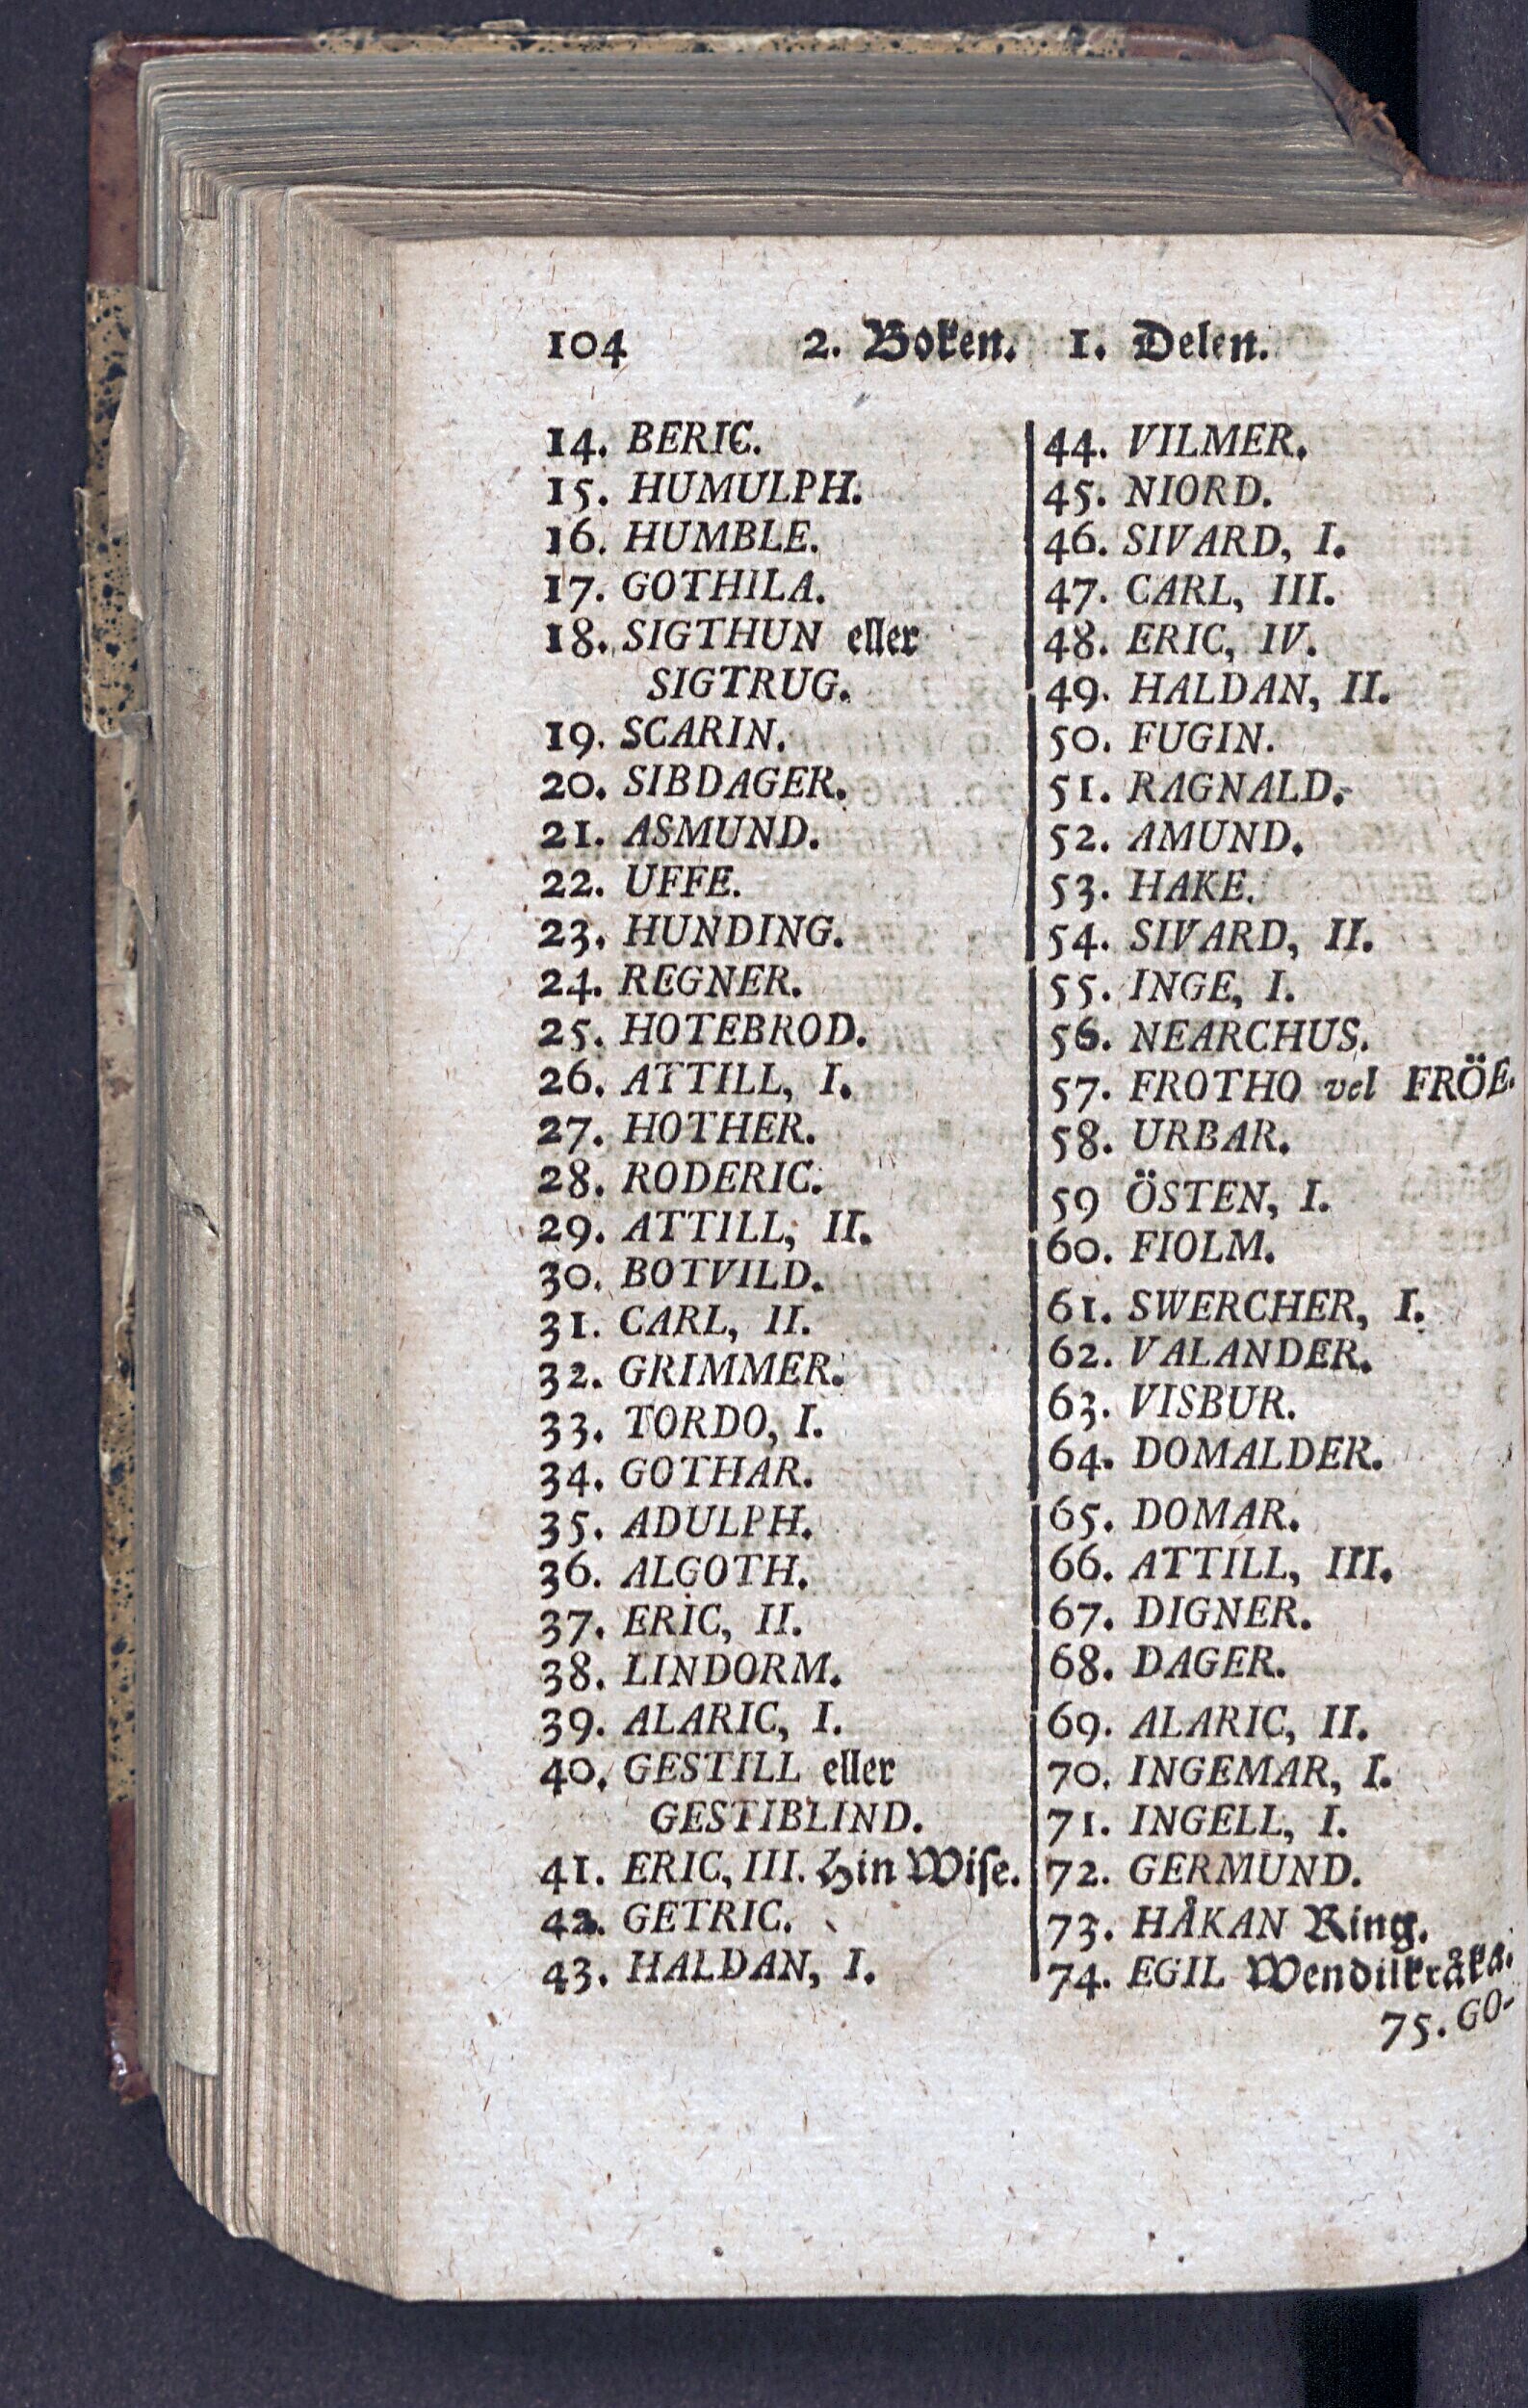 104 2. Boken. 1. Delen.
14. BERIC.
15. HUMULPH.
16. HUMBLE.
17. GOTHILA.
18. SIGTHUN eller
SIGTRUG.
19. SCARIN.
20. SIBDAGER.
21. ASMUND.
22. UFFE.
23. HUNDING.
24. REGNER.
25. HOTEBROD.
26. ATTILL, I.
27. HOTHER.
28. RODERIC.
29. ATTILL, II.
30. BOTVILD.
31. CARL, II.
32. GRIMMER.
33. TORDO, I.
34. GOTHAR.
35. ADULPH.
36. ALGOTH.
37. ERIC, II.
38. LINDORM.
39. ALARIC, I.
40. GESTILL eller
GESTIBLIND.
41. ERIC, III. Hin Wiſe.
42. GETRIC.
43. HALDAN, I.
44. VILMER.
45. NIORD.
46. SIVARD, I.
47. CARL, III.
48. ERIC, IV.
49. HALDAN, II.
50. FUGIN.
51. RAGNALD.
52. AMUND.
53. HAKE.
54. SIVARD, II.
55. INGE, I.
56. NEARCHUS.
57. FROTHO vel FRÖE.
58. URBAR.
59 ÖSTEN, I.
60. FIOLM.
61. SWERCHER, I.
62. VALANDER.
63. VISBUR.
64. DOMALDER.
65. DOMAR.
66. ATTILL, III.
67. DIGNER.
68. DAGER.
69. ALARIC, II.
70. INGEMAR, I.
71. INGELL, I.
72. GERMUND.
73. HÅKAN Ring.
74. EGIL Wendilkråka.
75. GO-